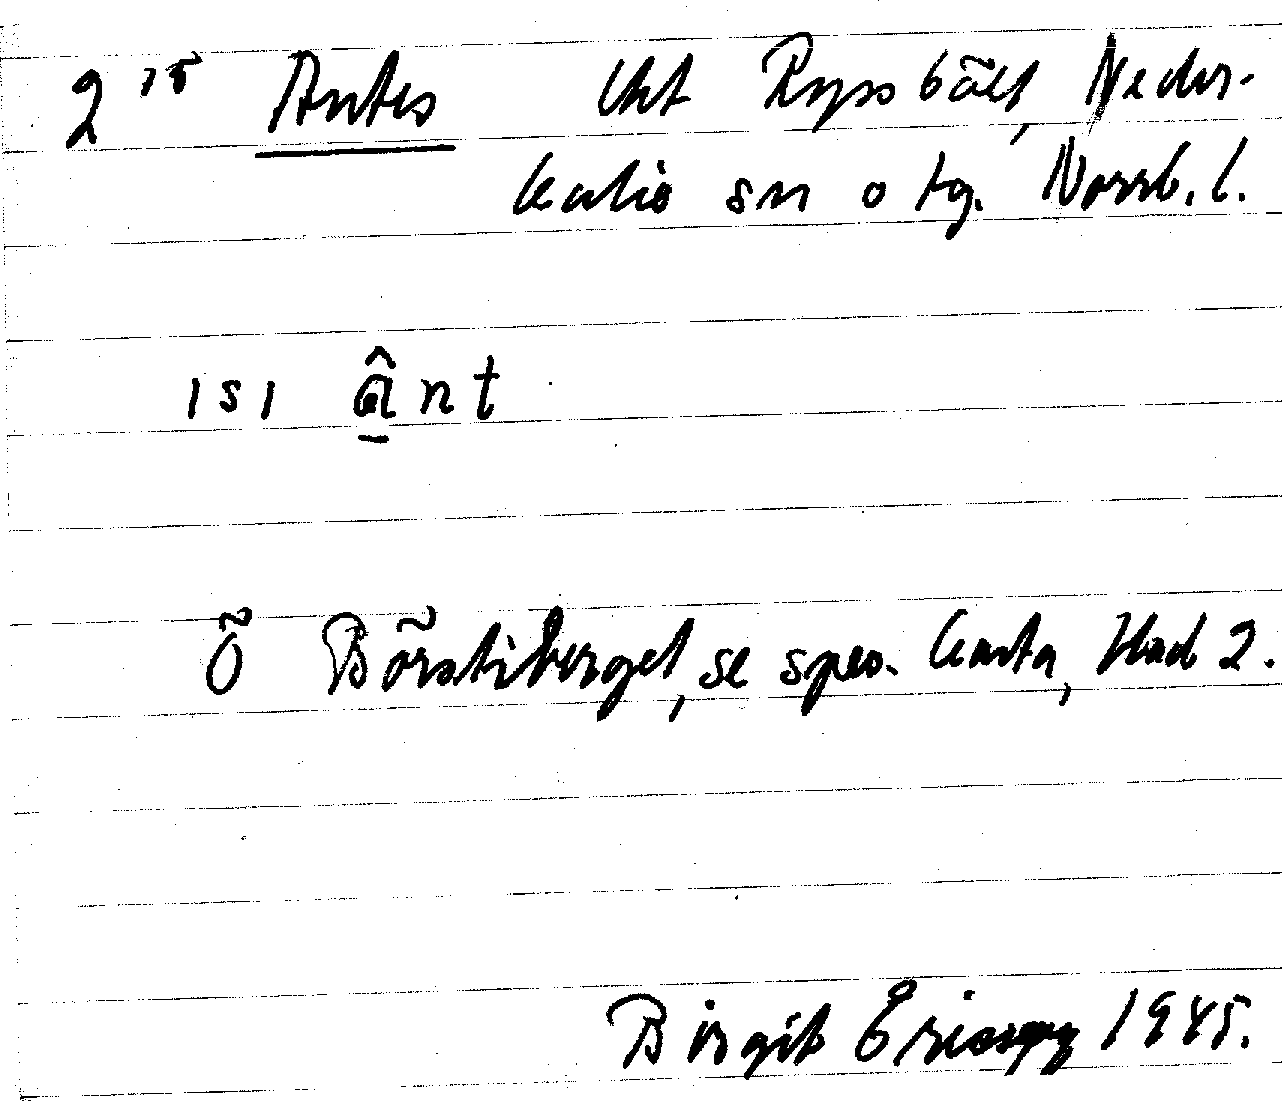 2 15 Antes Ukt Ryssbält, Neder-
kalix sn o tg. Norrb. l.
ısı ânt
Ö Börstiberget, se spec. karta, blad 2.
Birgit 1945.